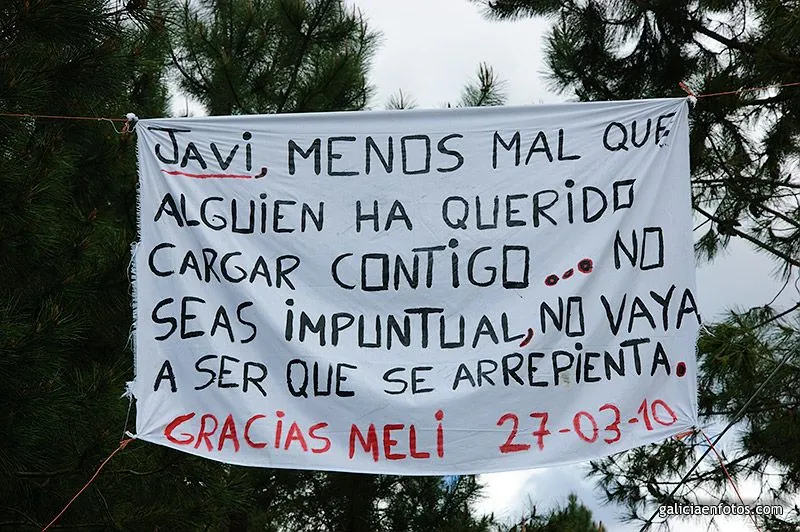 JAVi, MENOS MAL QUE
ALGUiEN HA QUERiDO
CARGAR CONTiGO... NO
SEAS iMPUNTUAL, NO VAYA
A SER QUE SE ARREPiENTA.
GRACiAS MELi 27-03-10
galiciaenfotos.com